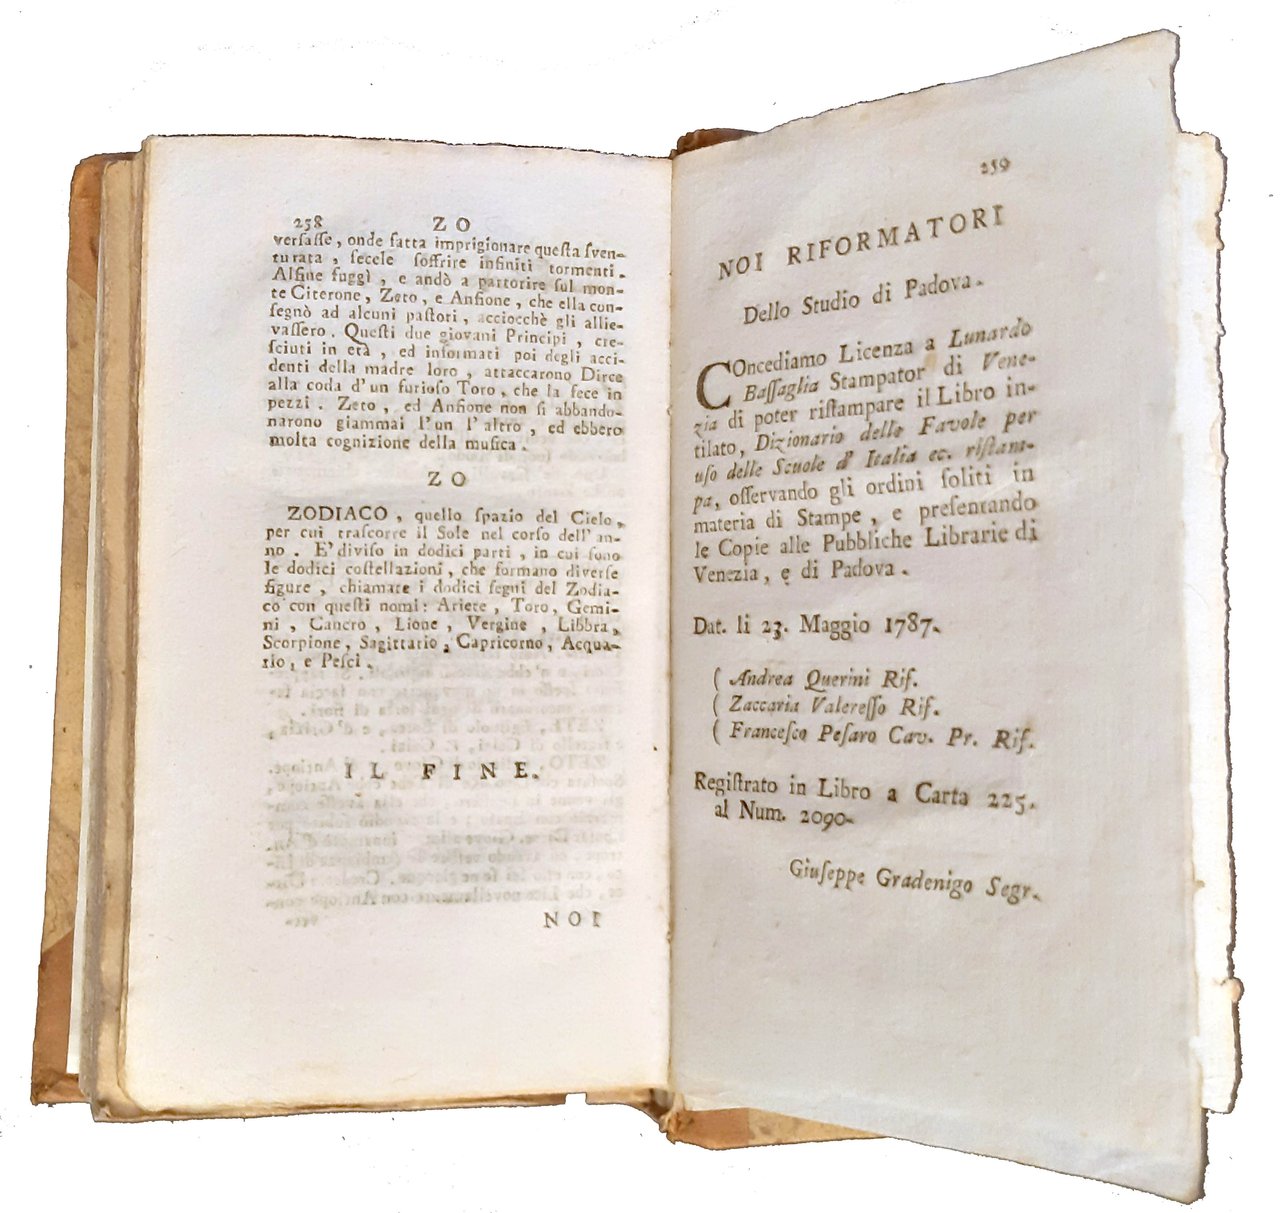 258 ZO
versasse, onde fatta imprigionare questa sven-
turata, fecele soffrire infiniti tormenti.
Alfine fuggì, e andò a partorire sul mon-
te Citerone, Zeto, e Anfione, che ella con-
segnò ad alcuni pastori, acciocchè gli allie-
vassero. Questi due giovani Principi, cre-
sciuti in età, ed informati poi degli acci-
denti della madre loro, attaccarono Dirce
alla coda d'un furioso Toro, che la fece in
pezzi. Zeto, ed Anfione non si abbando-
narono giammai l'un l'altro, ed ebbero
molta cognizione della musica.
ZO
ZODIACO, quello spazio del Cielo,
per cui trascorre il Sole nel corso dell'an-
no. E' diviso in dodici parti, in cui sono
le dodici costellazioni, che formano diverse
figure, chiamate i dodici segni del Zodia-
co con questi nomi: Ariete, Toro, Gemi-
ni, Cancro, Lione, Vergine, Libbra,
Scorpione, Sagittario, Capricorno, Acqua-
rio, e Pesci.
IL FINE.
NOI
259
NOI RIFORMATORI
Dello Studio di Padova.
COncediamo Licenza a Lunardo
Bassaglia Stampator di Vene-
zia di poter ristampare il Libro in-
tilato, Dizionario delle Favole per
uso delle Scuole d' Italia ec. ristam-
pa, osservando gli ordini soliti in
materia di Stampe, e presentando
le Copie alle Pubbliche Librarie di
Venezia, e di Padova.
Dat. li 23. Maggio 1787.
( Andrea Querini Rif.
( Zaccaria Valeresso Rif.
( Francesco Pesaro Cav. Pr. Rif.
Registrato in Libro a Carta 225.
al Num. 2090.
Giuseppe Gradenigo Segr.